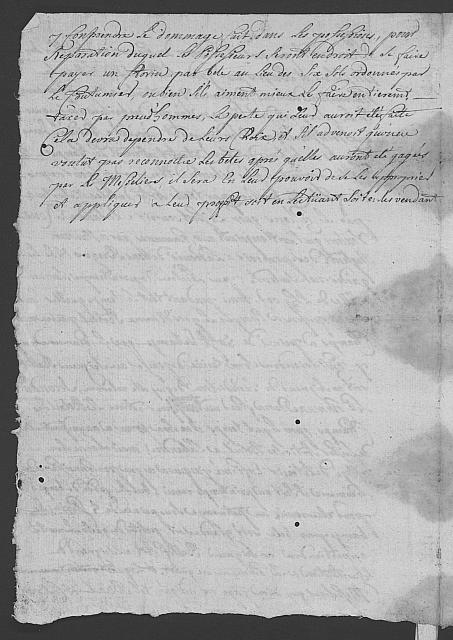 y Conprendre Le dommage fait dans Les possessions, pour
Reparation duquel les possesseurs seront en droit de se faire
payer un florin par bete au lieu des six sols ordonnes par
le Coutumier ou bien s'ils aiment mieux Le faire entierem.t
taxer par preudhommes, la perte qui Leur auront ete faite
Cela Devra dependre de Leurs Choix et s'il advenoit qu'on ne
voulut pas reconnoitre Les betes apres qu'elles auront ete gagees
par Le Messeliers il sera En Leur pouvoir de se Les
et appliquer a Leur proffit soit en les tüant soit en les vendant